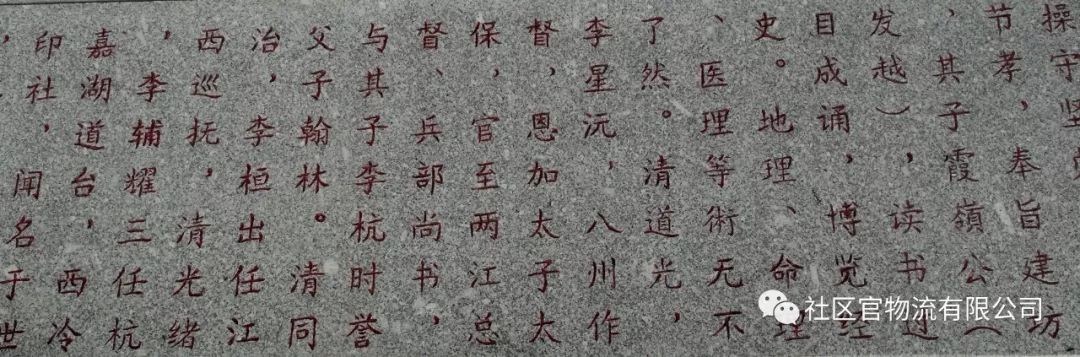 操守坚
节孝，奉旨建坊
、其子霞嶺公（
发越），读书过
目成诵，博览经
史。地理、命理
、医理等術无不
了然。清道光，
李星沅，八州作
督，恩加太子太
保，官至两江总
督、兵部尚书，
与其子李杭时誉
父子翰林。清同
治，李桓出任江
西巡抚，清光绪
，李辅耀三任杭
嘉湖道台，西冷
印社，闻名于世
社区官物流有限公司